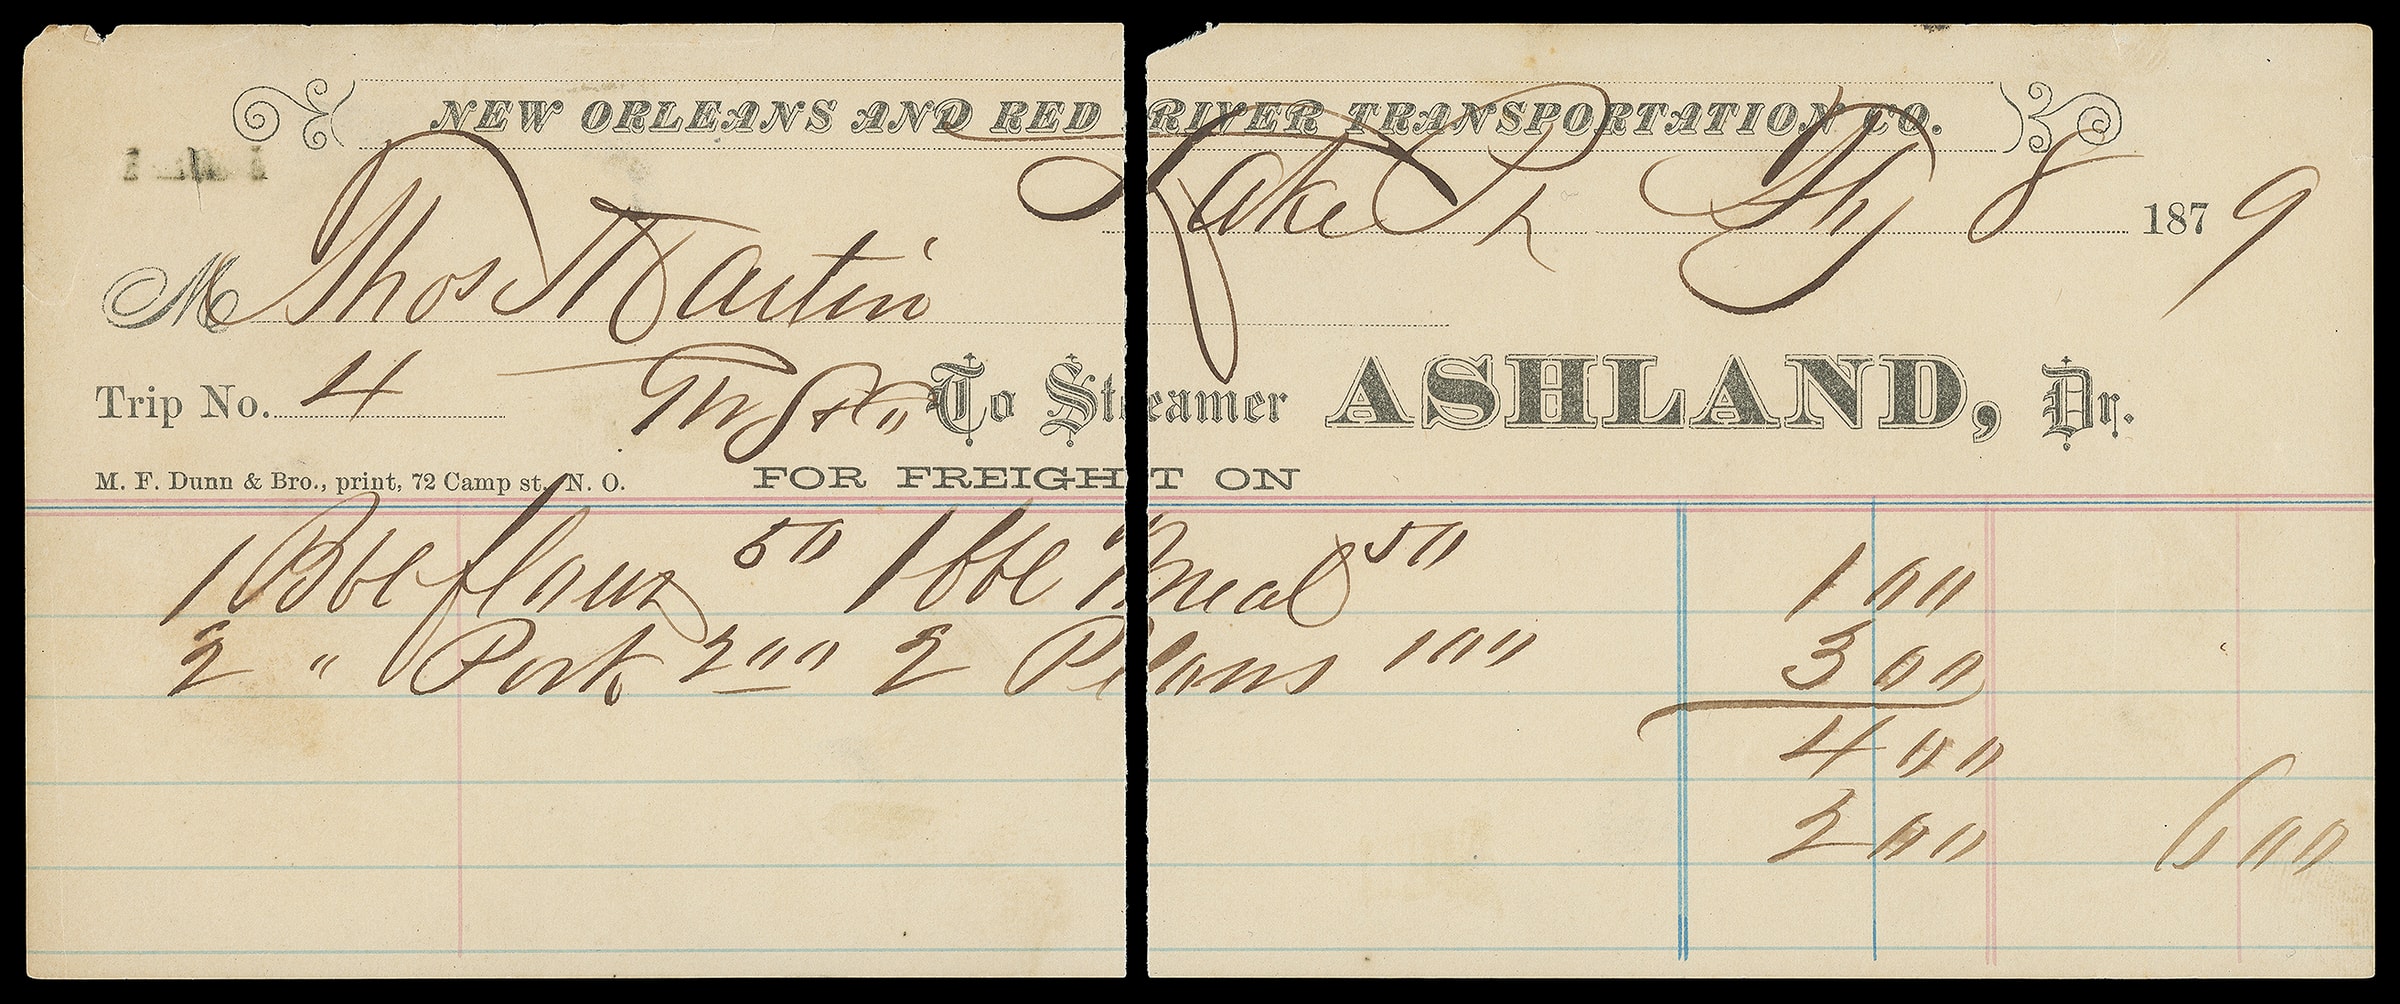 NEW ORLEANS AND RED RIVER TRANSPORTATION CO.
Lake Ph 8 1879
M Thos Martin
Trip No. 4 To Steamer ASHLAND, Dr.
M. F. Dunn & Bro., print, 72 Camp st. N. O. FOR FREIGHT ON
1 Bbl flour 50 1 bbl Meal 50 1 00
2 " Pork 200 2 100 3 00
4 00
2 00 6 00